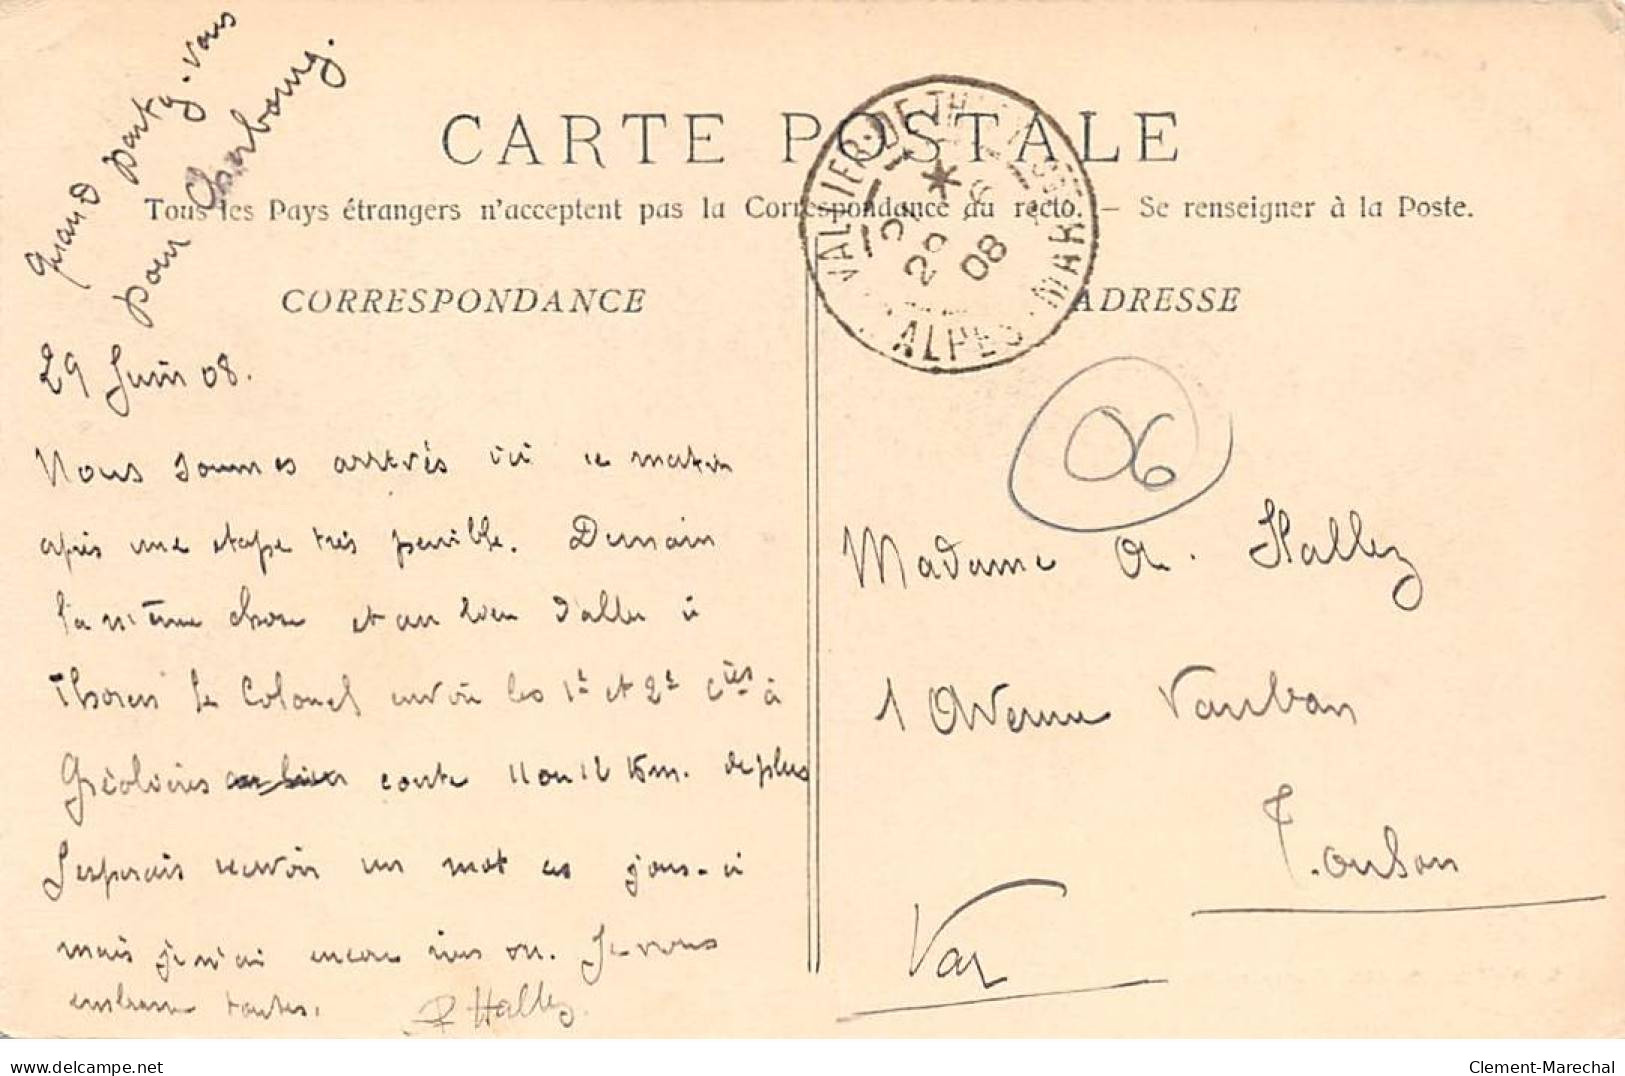 Quand partez-vous
pour Cherbourg.
CARTE POSTALE
Tous les Pays étrangers n'acceptent pas la Correspondance au recto. — Se renseigner à la Poste.
CORRESPONDANCE
29 Juin 08.
Nous sommes arrivés ici ce matin
après une étape très pénible. Demain
la même chose et au lieu d'aller à
Thorenc le Colonel envoie les 1e et 2e Cies à
Gréolières au lieu conte 11 ou 12 Km. de plus
J'espérais recevoir un mot ces jours-ci
mais je n'ai encore rien eu. Je vous
embrasse toutes.
P Hallez
VALLIER-DE-TH
* 
29 6
08
ALPES MAR
ADRESSE
06
Madame A. Hallez
1 Avenue Vauban
Toulon
Var
www.delcampe.net
Clement-Marechal